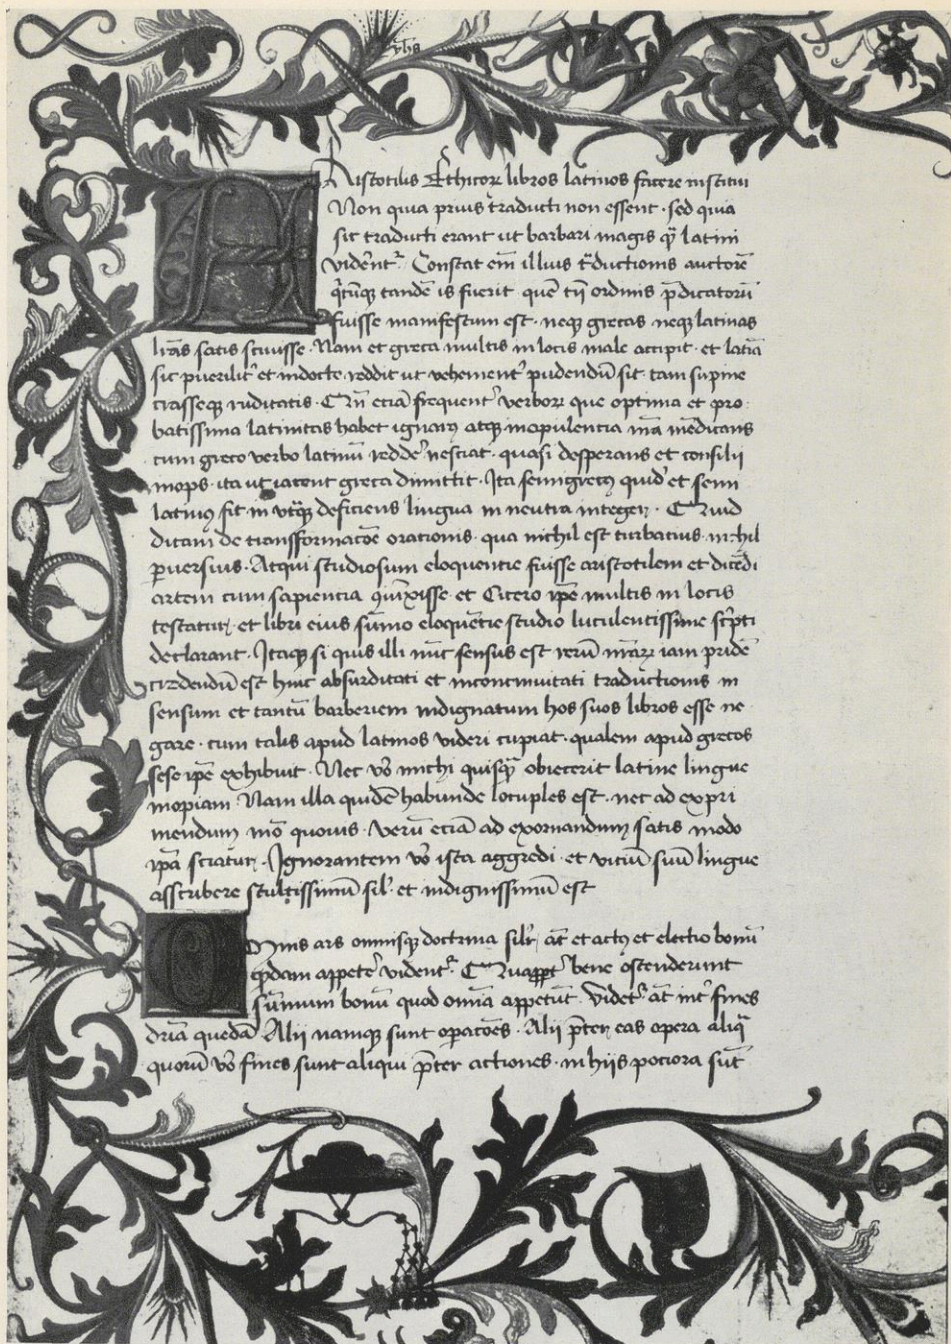 yhs
Aristotilis Ethicoꝝ libros latinos facere institui
Non quia prius traducti non essent · sed quia
sic traducti erant ut barbari magis qͣ̄ latini
vidē̄nt᷑ · Constat em̄ illius t͛ductionis auctorē
q̄cūqꝫ tandē is fuerit quē tn̄ ordinis p̄dicatorū
fuisse manifestum est · neqꝫ grecas neqꝫ latinas
lr̄as satis sciuisse · Nam et greca multis in locis male accipit · et latīa
sic puerilit᷑ et indocte reddit ut vehement᷑ pudendū sit tam supine
crasseqꝫ ruditatis · Cū eciā frequent᷑ verboꝝ que optima et pro
batissima latinitas habet ignarꝰ atqꝫ in opulentia nr̄a mēdicans
cum greco verbo latinū reddē nesciat · quasi desperans et consilii
inops · ita ut iacent greca dimittit · Ita semigrecꝰ quid᷑ et semi
latinꝰ fit in vtqꝫ deficiens lingua in neutra integer · Quid
dicam de transformacōe orationis · qua nichil est turbatius · nichil
ꝑuersius · Atqui studiosum eloquentie fuisse aristotilem et dicēdi
artem cum sapiencia quīxisse et Cicero ipē multis in locis
testatur · et libri eius sūmo eloquētie studio luculentissime sc̄pti
declarant · Itaqꝫ si quis illi nūc sensus est rerū nr̄aꝝ iam pridē
credendū est huic absurditati et inconcinnitati traductionis in
sensum et tantū barberiem indignatum hos suos libros esse ne
gare · cum talis apud latinos videri cupiat · qualem apud grecos
sese ipē exhibuit · Nec vͦ michi quisqͣ̄ obiecerit latine lingue
inopiam Nam illa quidē habunde locuples est · nec ad expri
mendum mō quouis · Verū eciā ad exornandum satis modo
ip̄a sciatur · Ignorantem vͦ ista aggredi · et vitiū suū lingue
asscribere stultissimū sil̛ · et indignissimū est
Omis ars omnisqꝫ doctrina silr̛ aūt et actꝰ et electio bonū
qͦddam appetē vident᷑ · Quappt᷑ bene ostenderunt
sūmum bonū quod omīa appetūt · Videt᷑ aūt int᷑ fines
dr̄ia quedā Alii namqꝫ sunt oꝑacōes · Alii p̄ter eas opera aliqͣ
quorū vͦ fines sunt aliqui p̄ter actiones · in hijs pociora sūt